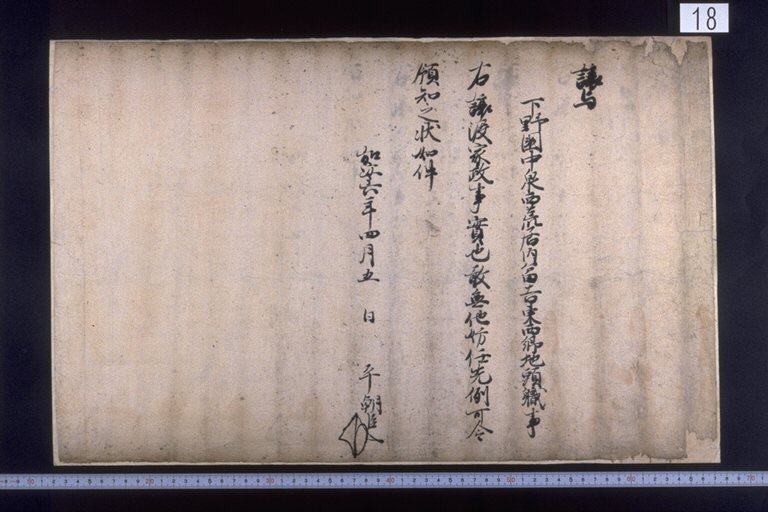 18
譲与
下野國中泉西荒居内冨吉東西郷地頭職事
右譲渡家政事實也敢無他妨任先例可令
領知之状如件
弘安六年四月五日 平朝臣